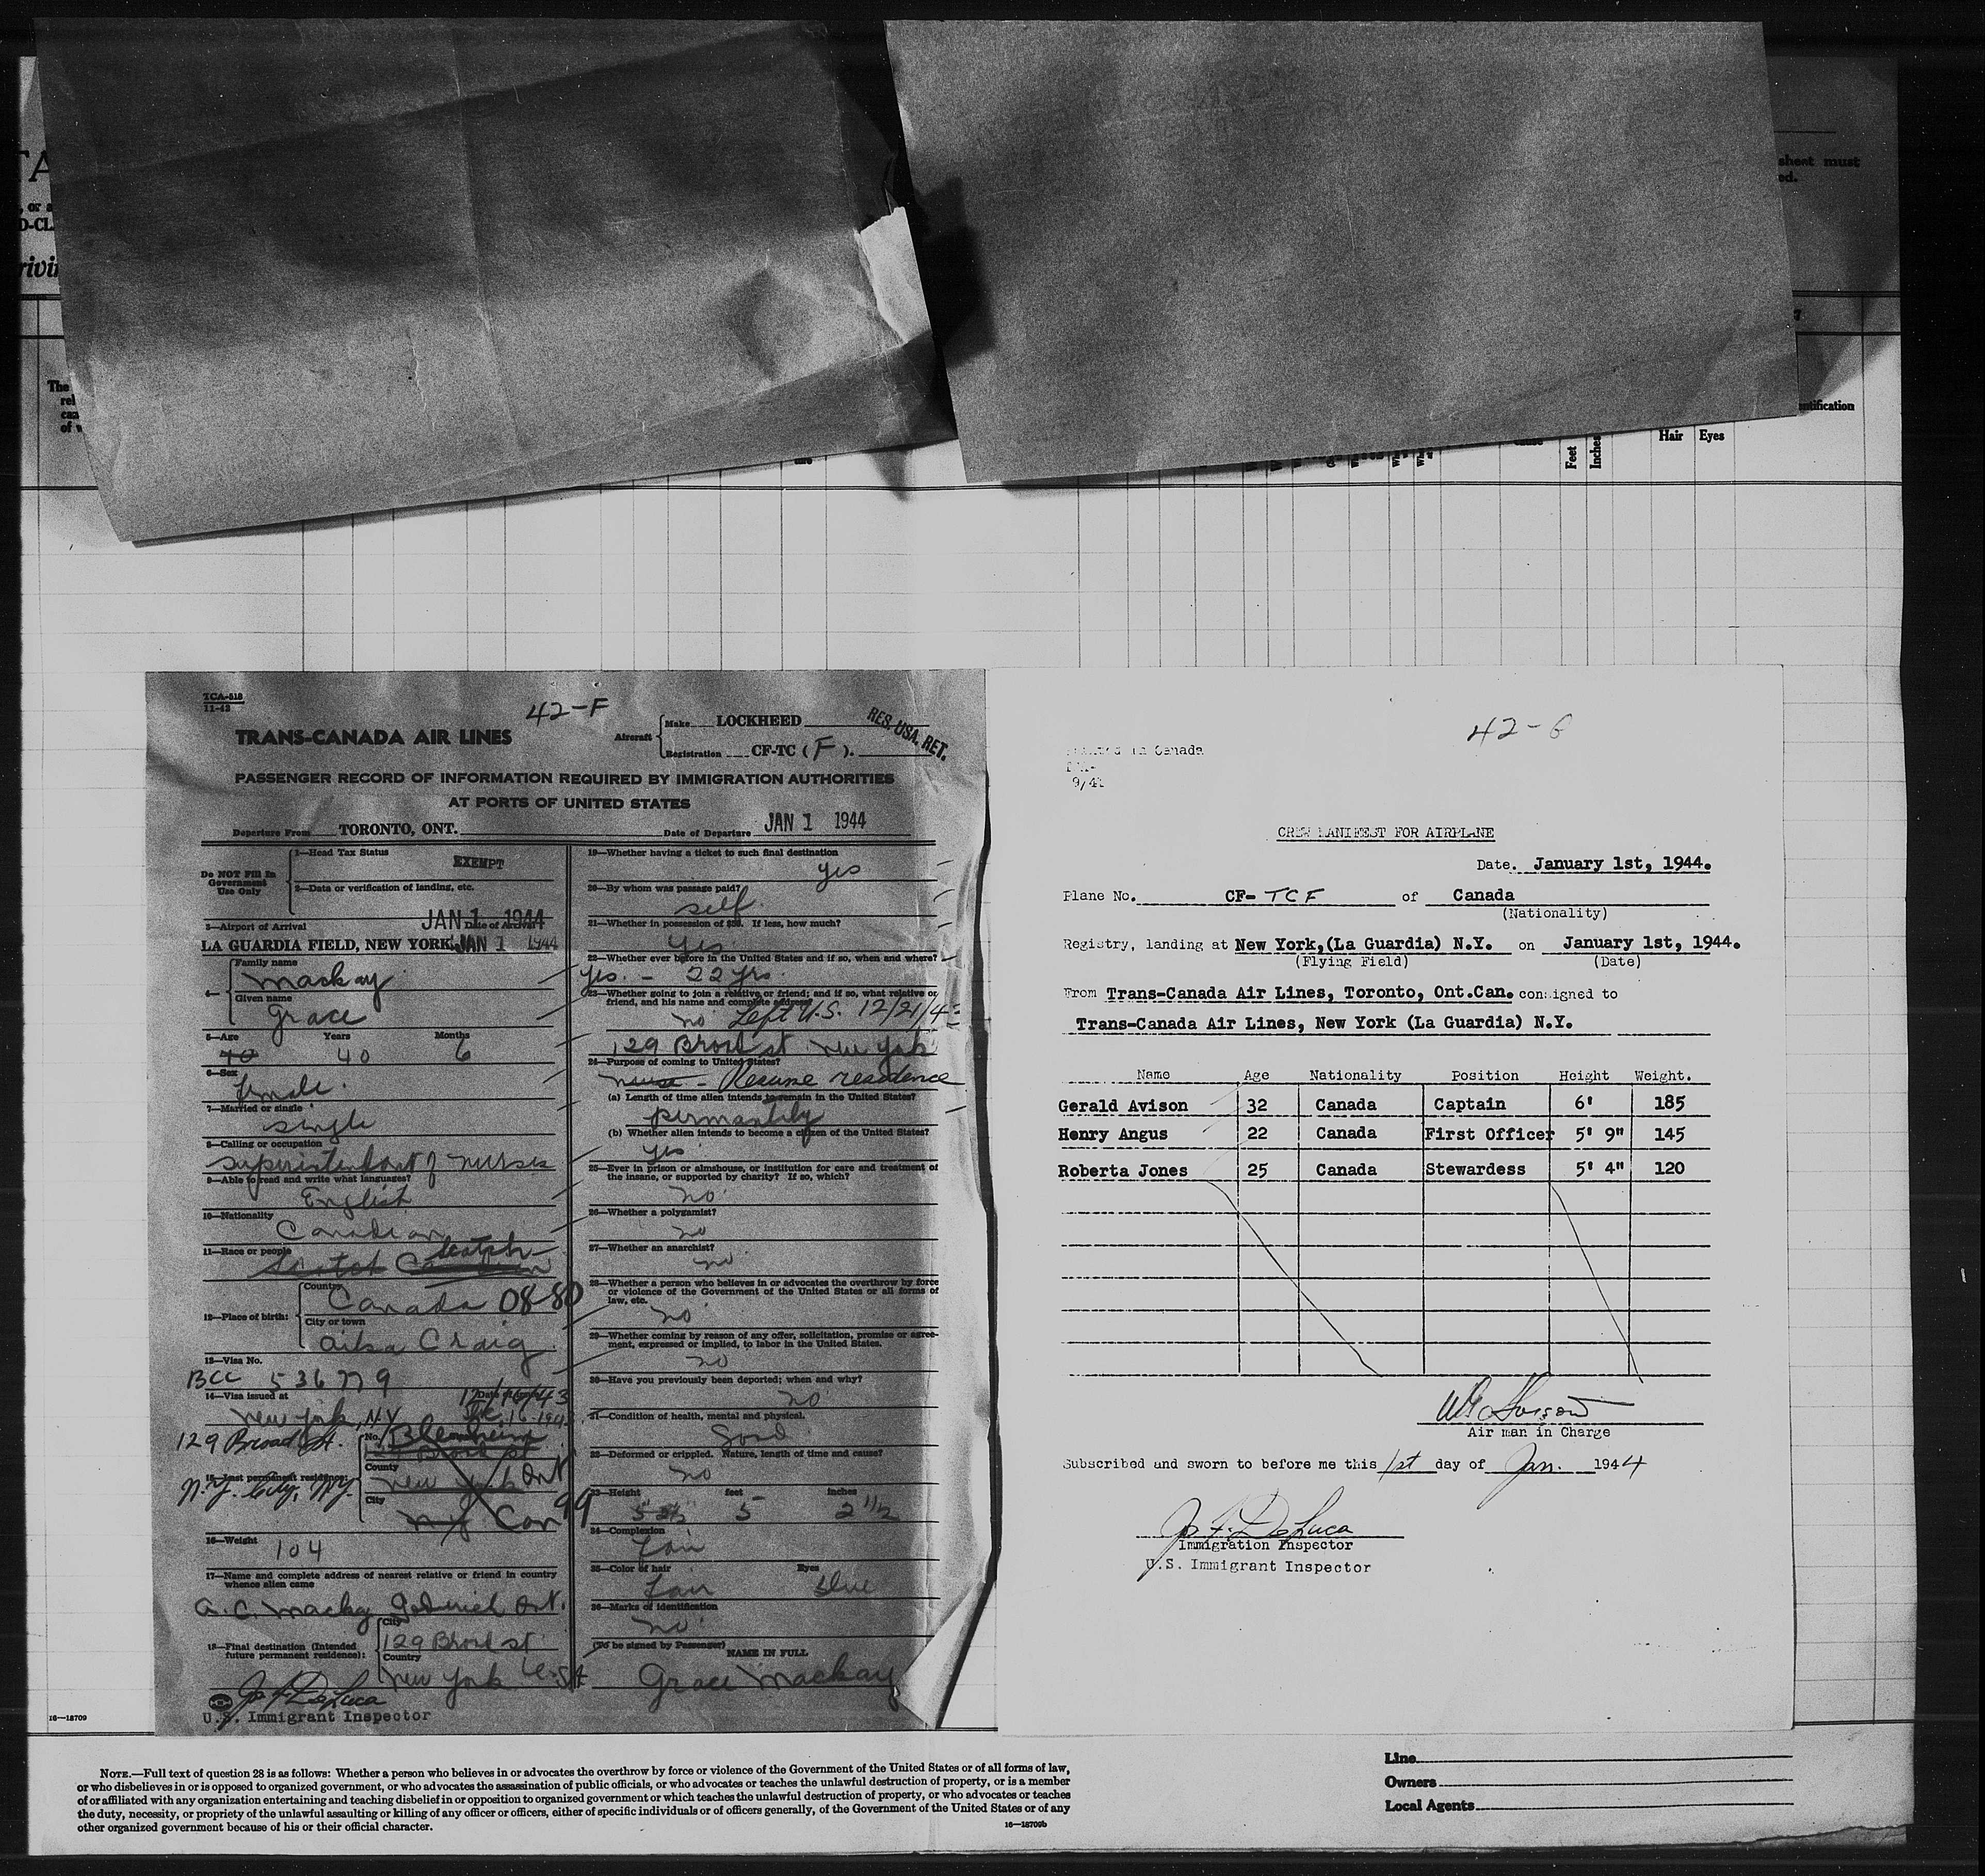 TA
, or a
D-CL
rivin
The
rel
can
of w
sheet must
ed.
7
ntification
Hair Eyes
Feet
Inches
TCA-518
11-43
42-F
TRANS-CANADA AIR LINES
Aircraft
Make LOCKHEED
Registration CF-TC ( F ).
RES. USA. RET.
PASSENGER RECORD OF INFORMATION REQUIRED BY IMMIGRATION AUTHORITIES
AT PORTS OF UNITED STATES
Departure From TORONTO, ONT. Date of Departure JAN 1 1944
Do NOT Fill In
Government
Use Only
1—Head Tax Status
EXEMPT
2—Data or verification of landing, etc.
JAN 1 1944
3—Airport of Arrival Date of Arrival
LA GUARDIA FIELD, NEW YORK JAN 1 1944
4—
Family name
Mackay
Given name
Grace
5—Age Years Months
40 40 6
6—Sex
female.
7—Married or single
single
8—Calling or occupation
superintendant of nurses
9—Able to read and write what languages?
English
10—Nationality
Canadian
11—Race or people
Scotch
Scotch Canadian
12—Place of birth:
Country
Canada 08-80
City or town
Ailsa Craig
13—Visa No.
BCC 536779
14—Visa issued at
12/16/43
New York, NY Dec. 16. 1943
129 Broad St.
No. Blenheim
Broad st
15—Last permanent residence:
County
New York Ont
N.Y. City, N.Y.
City
NY Can 99
16—Weight
104
17—Name and complete address of nearest relative or friend in country
whence alien came
A. C. Mackay Goderich Ont.
18—Final destination (Intended
future permanent residence):
City
129 Broad st
Country
New York U.S.A
Jos F. DeLuca
U.S. Immigrant Inspector
19—Whether having a ticket to such final destination
yes
20—By whom was passage paid?
self.
21—Whether in possession of $50. If less, how much?
Yes.
22—Whether ever before in the United States and if so, when and where?
yes. – 22 yrs.
23—Whether going to join a relative or friend; and if so, what relative or
friend, and his name and complete address?
no Left U.S. 12/21/43
129 Broad st New York
24—Purpose of coming to United States?
nurse – Resume residence
(a) Length of time alien intends to remain in the United States?
permantly
(b) Whether alien intends to become a citizen of the United States?
yes
25—Ever in prison or almshouse, or institution for care and treatment of
the insane, or supported by charity? If so, which?
no
26—Whether a polygamist?
no
27—Whether an anarchist?
no
28—Whether a person who believes in or advocates the overthrow by force
or violence of the Government of the United States or all forms of
law, etc.
no
29—Whether coming by reason of any offer, solicitation, promise or agree-
ment, expressed or implied, to labor in the United States.
no
30—Have you previously been deported; when and why?
no
31—Condition of health, mental and physical.
Good
32—Deformed or crippled. Nature, length of time and cause?
no
33—Height feet inches
5 2 1/2
34—Complexion
fair
35—Color of hair Eyes
fair blue
36—Marks of identification
no
(To be signed by Passenger)
NAME IN FULL
Grace Mackay
42-G
Printed in Canada
9/43
CREW MANIFEST FOR AIRPLANE
Date. January 1st, 1944.
Plane No. CF- TCF of Canada
(Nationality)
Registry, landing at New York,(La Guardia) N.Y. on January 1st, 1944.
(Flying Field) (Date)
From Trans-Canada Air Lines, Toronto, Ont.Can. consigned to
Trans-Canada Air Lines, New York (La Guardia) N.Y.
Name Age Nationality Position Height Weight.
Gerald Avison 32 Canada Captain 6' 185
Henry Angus 22 Canada First Officer 5' 9" 145
Roberta Jones 25 Canada Stewardess 5' 4" 120
Air man in Charge
Subscribed and sworn to before me this 1st day of Jan. 1944
Jos F. DeLuca
Immigration Inspector
U.S. Immigrant Inspector
16—18709
NOTE.—Full text of question 28 is as follows: Whether a person who believes in or advocates the overthrow by force or violence of the Government of the United States or of all forms of law,
or who disbelieves in or is opposed to organized government, or who advocates the assassination of public officials, or who advocates or teaches the unlawful destruction of property, or is a member
of or affiliated with any organization entertaining and teaching disbelief in or opposition to organized government or which teaches the unlawful destruction of property, or who advocates or teaches
the duty, necessity, or propriety of the unlawful assaulting or killing of any officer or officers, either of specific individuals or of officers generally, of the Government of the United States or of any
other organized government because of his or their official character.
16—18709b
Line
Owners
Local Agents